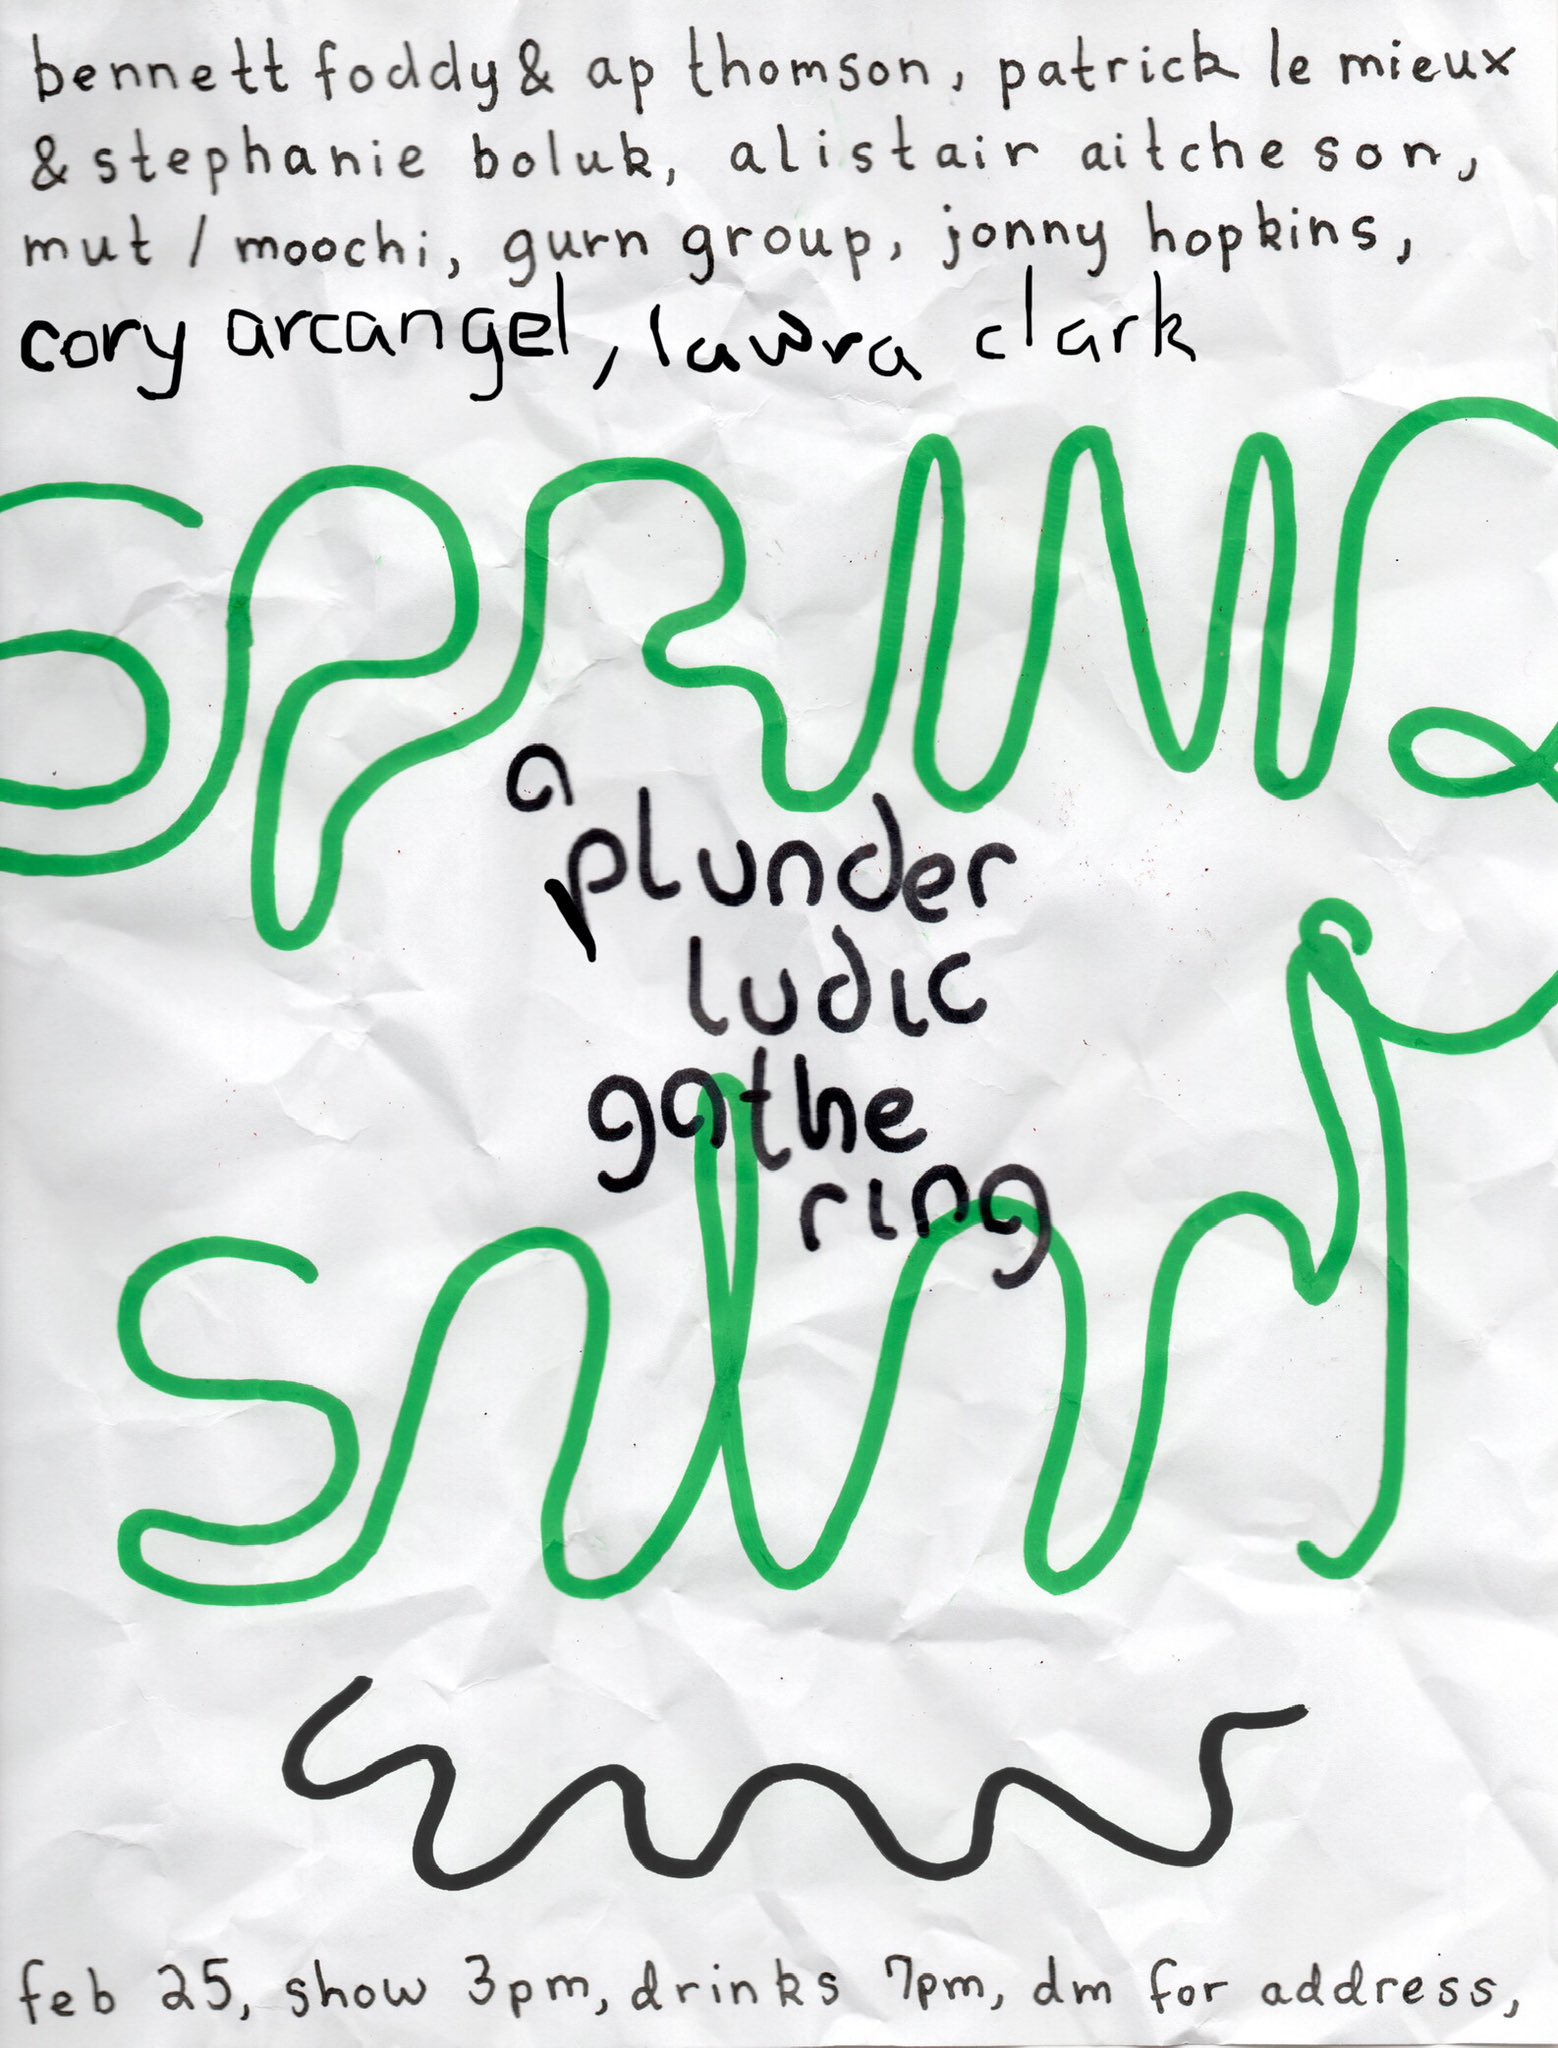 bennett foddy & ap thomson, patrick le mieux
& stephanie boluk, alistair aitcheson,
mut / moochi, gurn group, jonny hopkins,
cory arcangel, lawra clark
SPRING
a
plunder
ludic
gathe
ring
feb 25, show 3pm, drinks 7pm, dm for address,